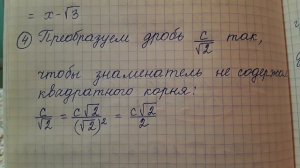 = x - √3
④ Преобразуем дробь c/√2 так,
чтобы знаменатель не содержал
квадратного корня:
c/√2 = c√2/(√2)² = c√2/2